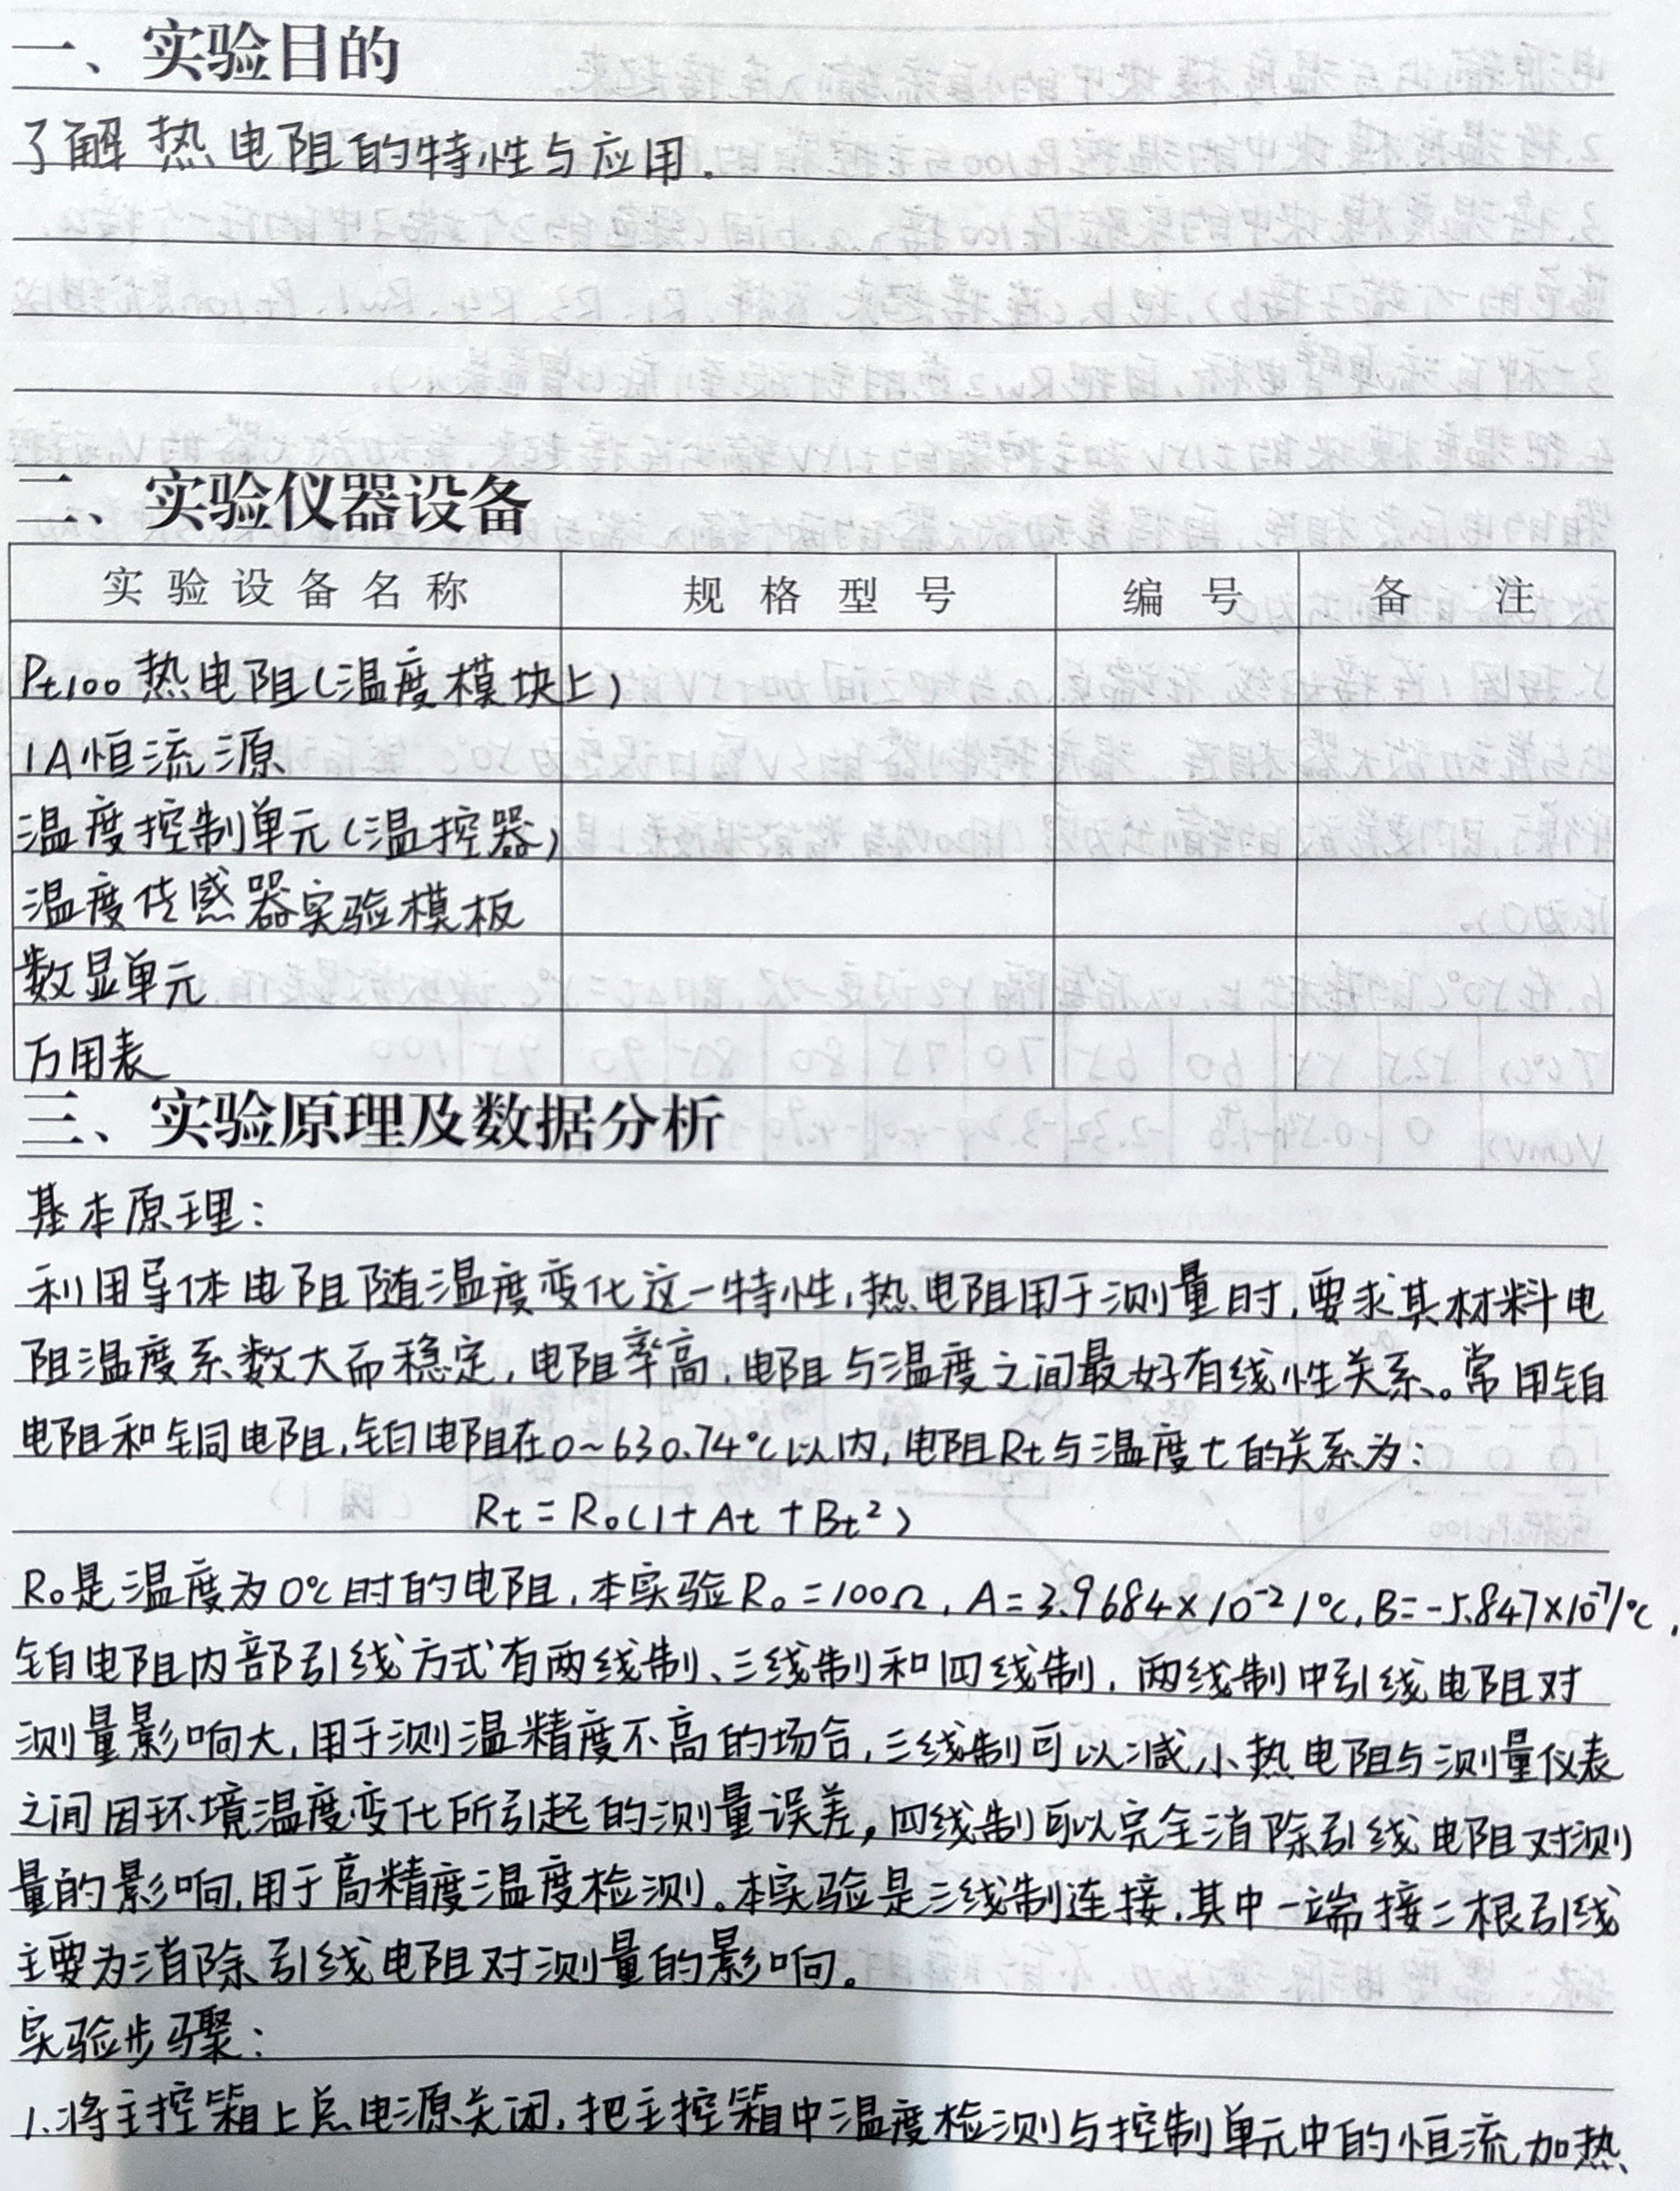 一、实验目的
了解热电阻的特性与应用.
二、实验仪器设备
实验设备名称 规格型号 编号 备注
Pt100热电阻(温度模块上)
1A恒流源
温度控制单元(温控器)
温度传感器实验模板
数显单元
万用表
三、实验原理及数据分析
基本原理:
利用导体电阻随温度变化这一特性,热电阻用于测量时,要求其材料电
阻温度系数大而稳定,电阻率高,电阻与温度之间最好有线性关系。常用铂
电阻和铜电阻,铂电阻在0~630.74℃以内,电阻Rt与温度t的关系为:
Rt=R₀(1+At+Bt²)
R₀是温度为0℃时的电阻,本实验R₀=100Ω,A=3.9684×10⁻²/℃,B=-5.847×10⁻⁷/℃,
铂电阻内部引线方式有两线制、三线制和四线制,两线制中引线电阻对
测量影响大,用于测温精度不高的场合,三线制可以减小热电阻与测量仪表
之间因环境温度变化所引起的测量误差,四线制可以完全消除引线电阻对测
量的影响,用于高精度温度检测。本实验是三线制连接,其中一端接二根引线
主要为消除引线电阻对测量的影响。
实验步骤:
1.将主控箱上总电源关闭,把主控箱中温度检测与控制单元中的恒流加热